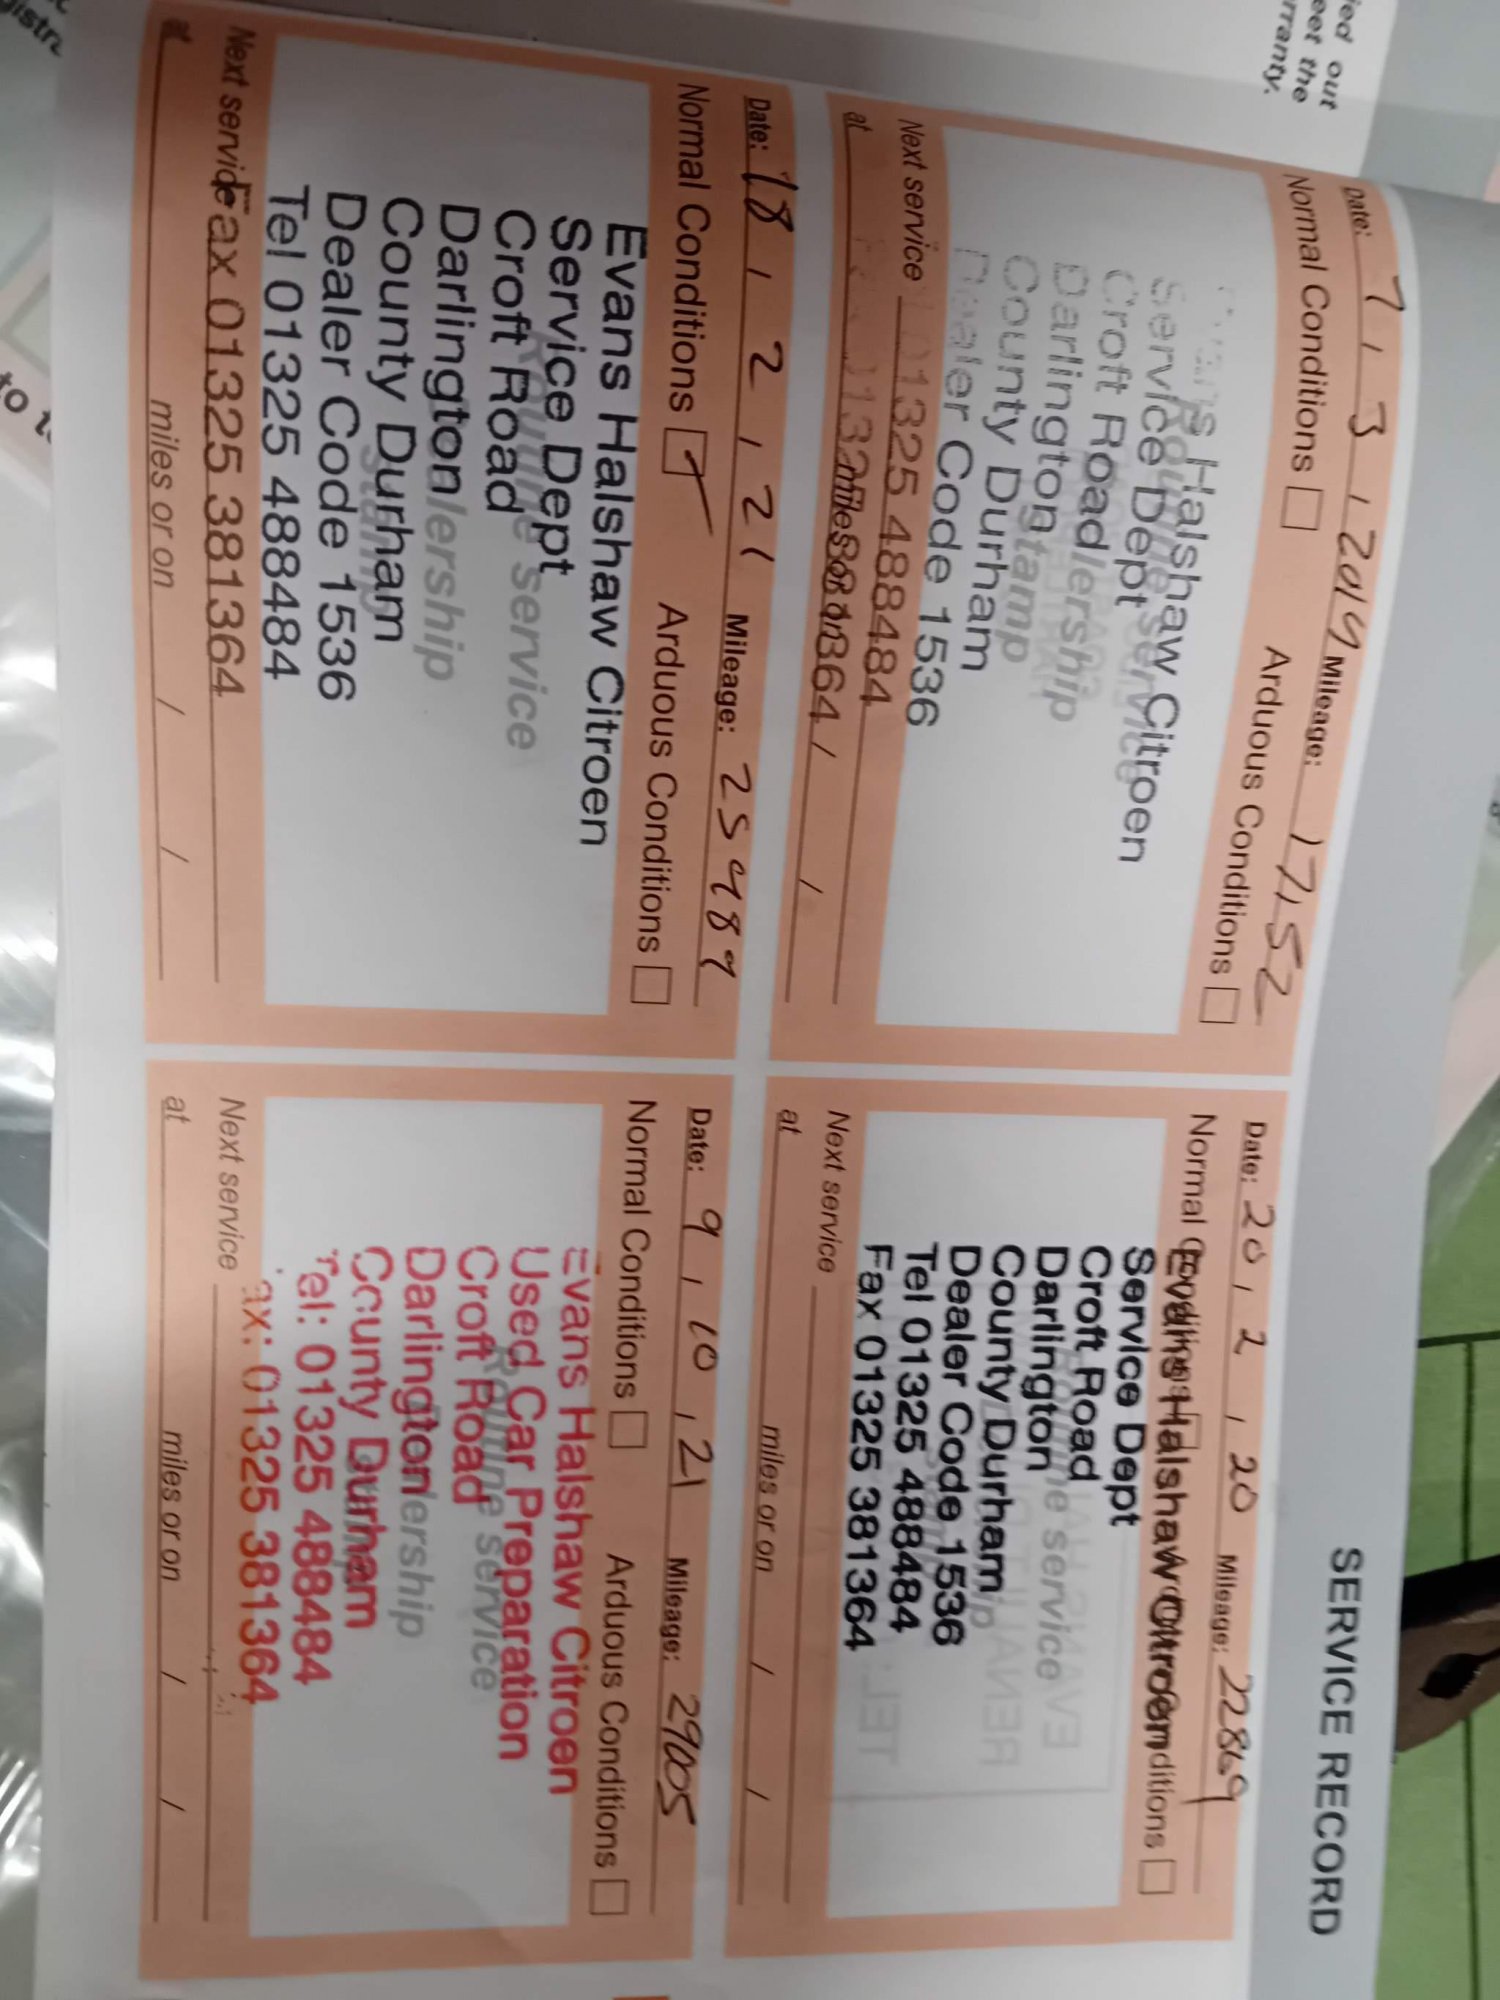 SERVICE RECORD
Date: 7 / 3 / 2019 Mileage: 17152
Normal Conditions Arduous Conditions
Evans Halshaw Citroen
Service Dept
Croft Road
Darlington
County Durham
Dealer Code 1536
Tel 01325 488484
Fax 01325 381364
Routine service
dealership
stamp
Next service
at miles or on / /
Date: 20 / 2 / 20 Mileage: 22869
Normal Conditions Arduous Conditions
Evans Halshaw Citroen
Service Dept
Croft Road
Darlington
County Durham
Dealer Code 1536
Tel 01325 488484
Fax 01325 381364
Routine service
Next service
at miles or on / /
Date: 18 / 2 / 21 Mileage: 25489
Normal Conditions Arduous Conditions
Evans Halshaw Citroen
Service Dept
Croft Road
Darlington
County Durham
Dealer Code 1536
Tel 01325 488484
Fax 01325 381364
Routine service
dealership
stamp
Next service
at miles or on / /
Date: 9 / 10 / 21 Mileage: 29005
Normal Conditions Arduous Conditions
Evans Halshaw Citroen
Used Car Preparation
Croft Road
Darlington
County Durham
Tel: 01325 488484
Fax: 01325 381364
Routine service
dealership
Next service
at miles or on / /
out
the